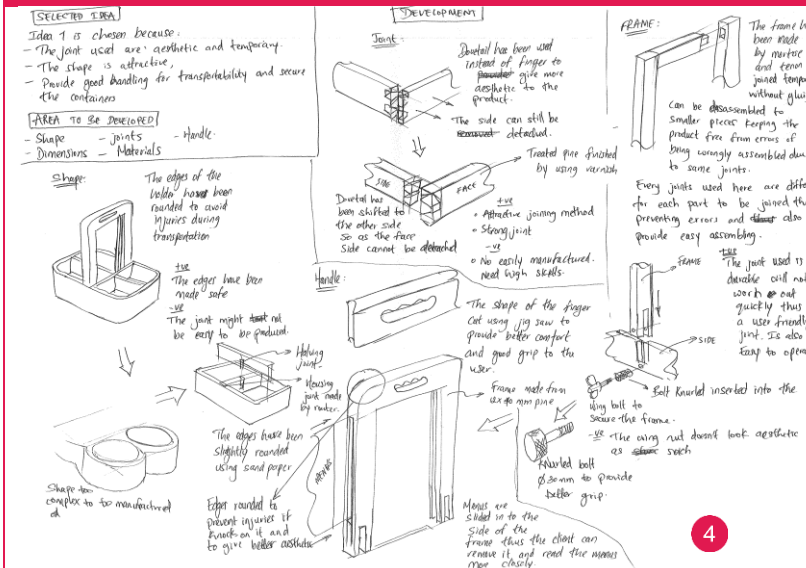 SELECTED IDEA
Idea 1 is chosen because:
- The joint used are aesthetic and temporary.
- The shape is attractive,
- Provide good handling for transportability and secure
the containers
AREA TO BE DEVELOPED
- Shape - joints - Handle.
- Dimensions - Materials
Shape:
The edges of the
holder have been
rounded to avoid
injuries during
transportation
+ve
The edges have been
made safe
-ve
The joint might not
be easy to be produced.
Halving
joint.
Housing
joint made
by router.
The edges have been
slightly rounded
using sand paper
Shape too
complex to be manufactured
Edges rounded to
prevent injuries if
knock on it and
to give better aesthetic
DEVELOPMENT
Joint:
Dovetail has been used
instead of finger to
give more
aesthetic to the
product.
The side can still be
removed detached.
SIDE
FACE
Treated pine finished
by using varnish
Dovetail has
been shifted to
the other side
so as the face
Side cannot be detached
+ve
Attractive joining method
Strong joint
-ve
No easily manufactured.
Need high skills.
Handle:
The shape of the finger
cut using jig saw to
provide better comfort
and good grip to the
user.
Frame made from
mm pine
MENUS
Menus are
slided in to the
side of the
frame thus the client can
remove it and read the menus
more closely.
FRAME:
The frame h
been made
by mortise
and tenon
joined tempo
without glui
Can be disassembled to
smaller pieces keeping the
product free from errors of
being wrongly assembled due
to same joints.
Every joints used here are diffe
for each part to be joined th
preventing errors and also
provide easy assembling.
FRAME
SIDE
+ve
The joint used is
durable will not
worn out
quickly thus
a user friendly
joint. Is also
Easy to opera
Bolt Knurled inserted into the
wing bolt to
secure the frame.
-ve The wing nut doesn't look aesthetic
as such
Knurled bolt
Ø 30mm to provide
better grip.
4